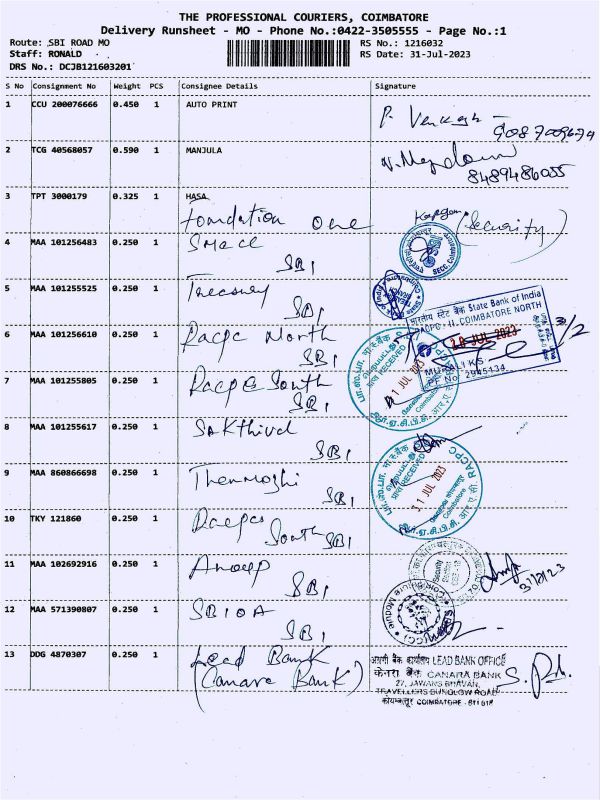 THE PROFESSIONAL COURIERS, COIMBATORE
Delivery Runsheet - MO - Phone No.:0422-3505555 - Page No.:1
Route: SBI ROAD MO RS No.: 1216032
Staff: RONALD RS Date: 31-Jul-2023
DRS No.: DCJB121603201
S No Consignment No Weight PCS Consignee Details Signature
1 CCU 200076666 0.450 1 AUTO PRINT
2 TCG 40568057 0.590 1 MANJULA
8489486055
3 TPT 3000179 0.325 1 HASA
foundation one (Security)
4 MAA 101256483 0.250 1 SMECC
SBI
5 MAA 101255525 0.250 1 Treasury
SBI
State Bank of India
RACPC - II, COIMBATORE NORTH
6 MAA 101256610 0.250 1 Racpc North
SBI
JUL 2023
MURALI K S
PF No. 2945134
7 MAA 101255805 0.250 1 Racpc South
SBI
8 MAA 101255617 0.250 1 Sakthivel
SBI
9 MAA 860866698 0.250 1 Thenmozhi
SBI
31 JUL 2023
RACPC
10 TKY 121860 0.250 1 Racpc
South SBI
11 MAA 102692916 0.250 1 Anoop
SBI
31/7/23
12 MAA 571390807 0.250 1 SBIOA
SBI
13 DDG 4870307 0.250 1 Lead Bank
(Canara Bank)
अग्रणी बैंक कार्यालय LEAD BANK OFFICE
केनरा बैंक CANARA BANK
27, JAWANS BHAVAN,
TRAVELLERS BUNGLOW ROAD
कोयम्बत्तूर COIMBATORE - 641 018